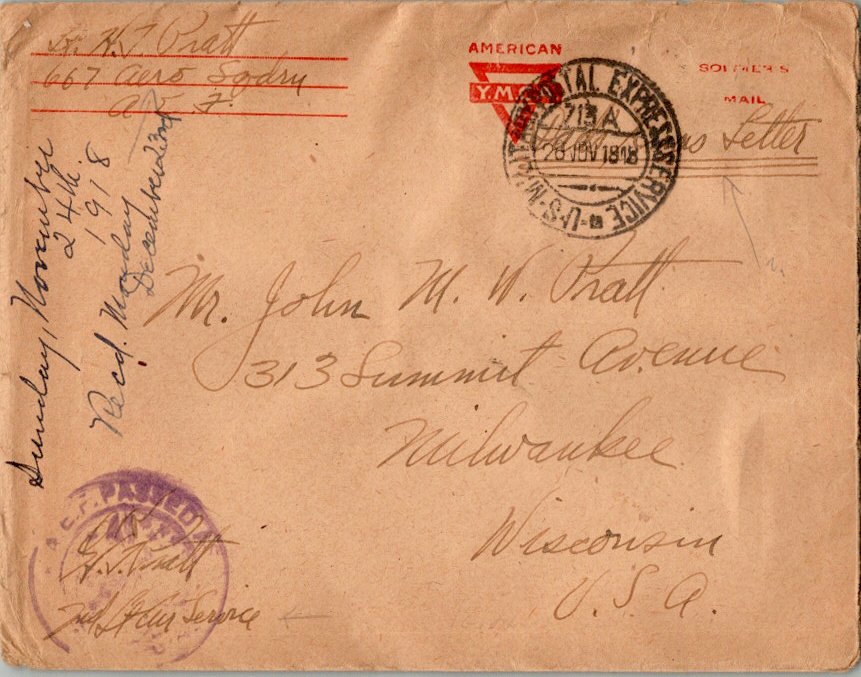 Lt. H. S. Pratt
667 Aero Sqdrn
A. E. F.
AMERICAN
Y.M.
SOLDIER'S
MAIL
U.S. MILITARY POSTAL EXPRESS SERVICE
713 A
26 NOV 1918
Letter
Sunday, November
24th
1918
Recd. Monday
December 23rd
Mr. John M. W. Pratt
313 Summit Avenue
Milwaukee
Wisconsin
U. S. A.
PASSED
H. S. Pratt
2nd Lt Air Service